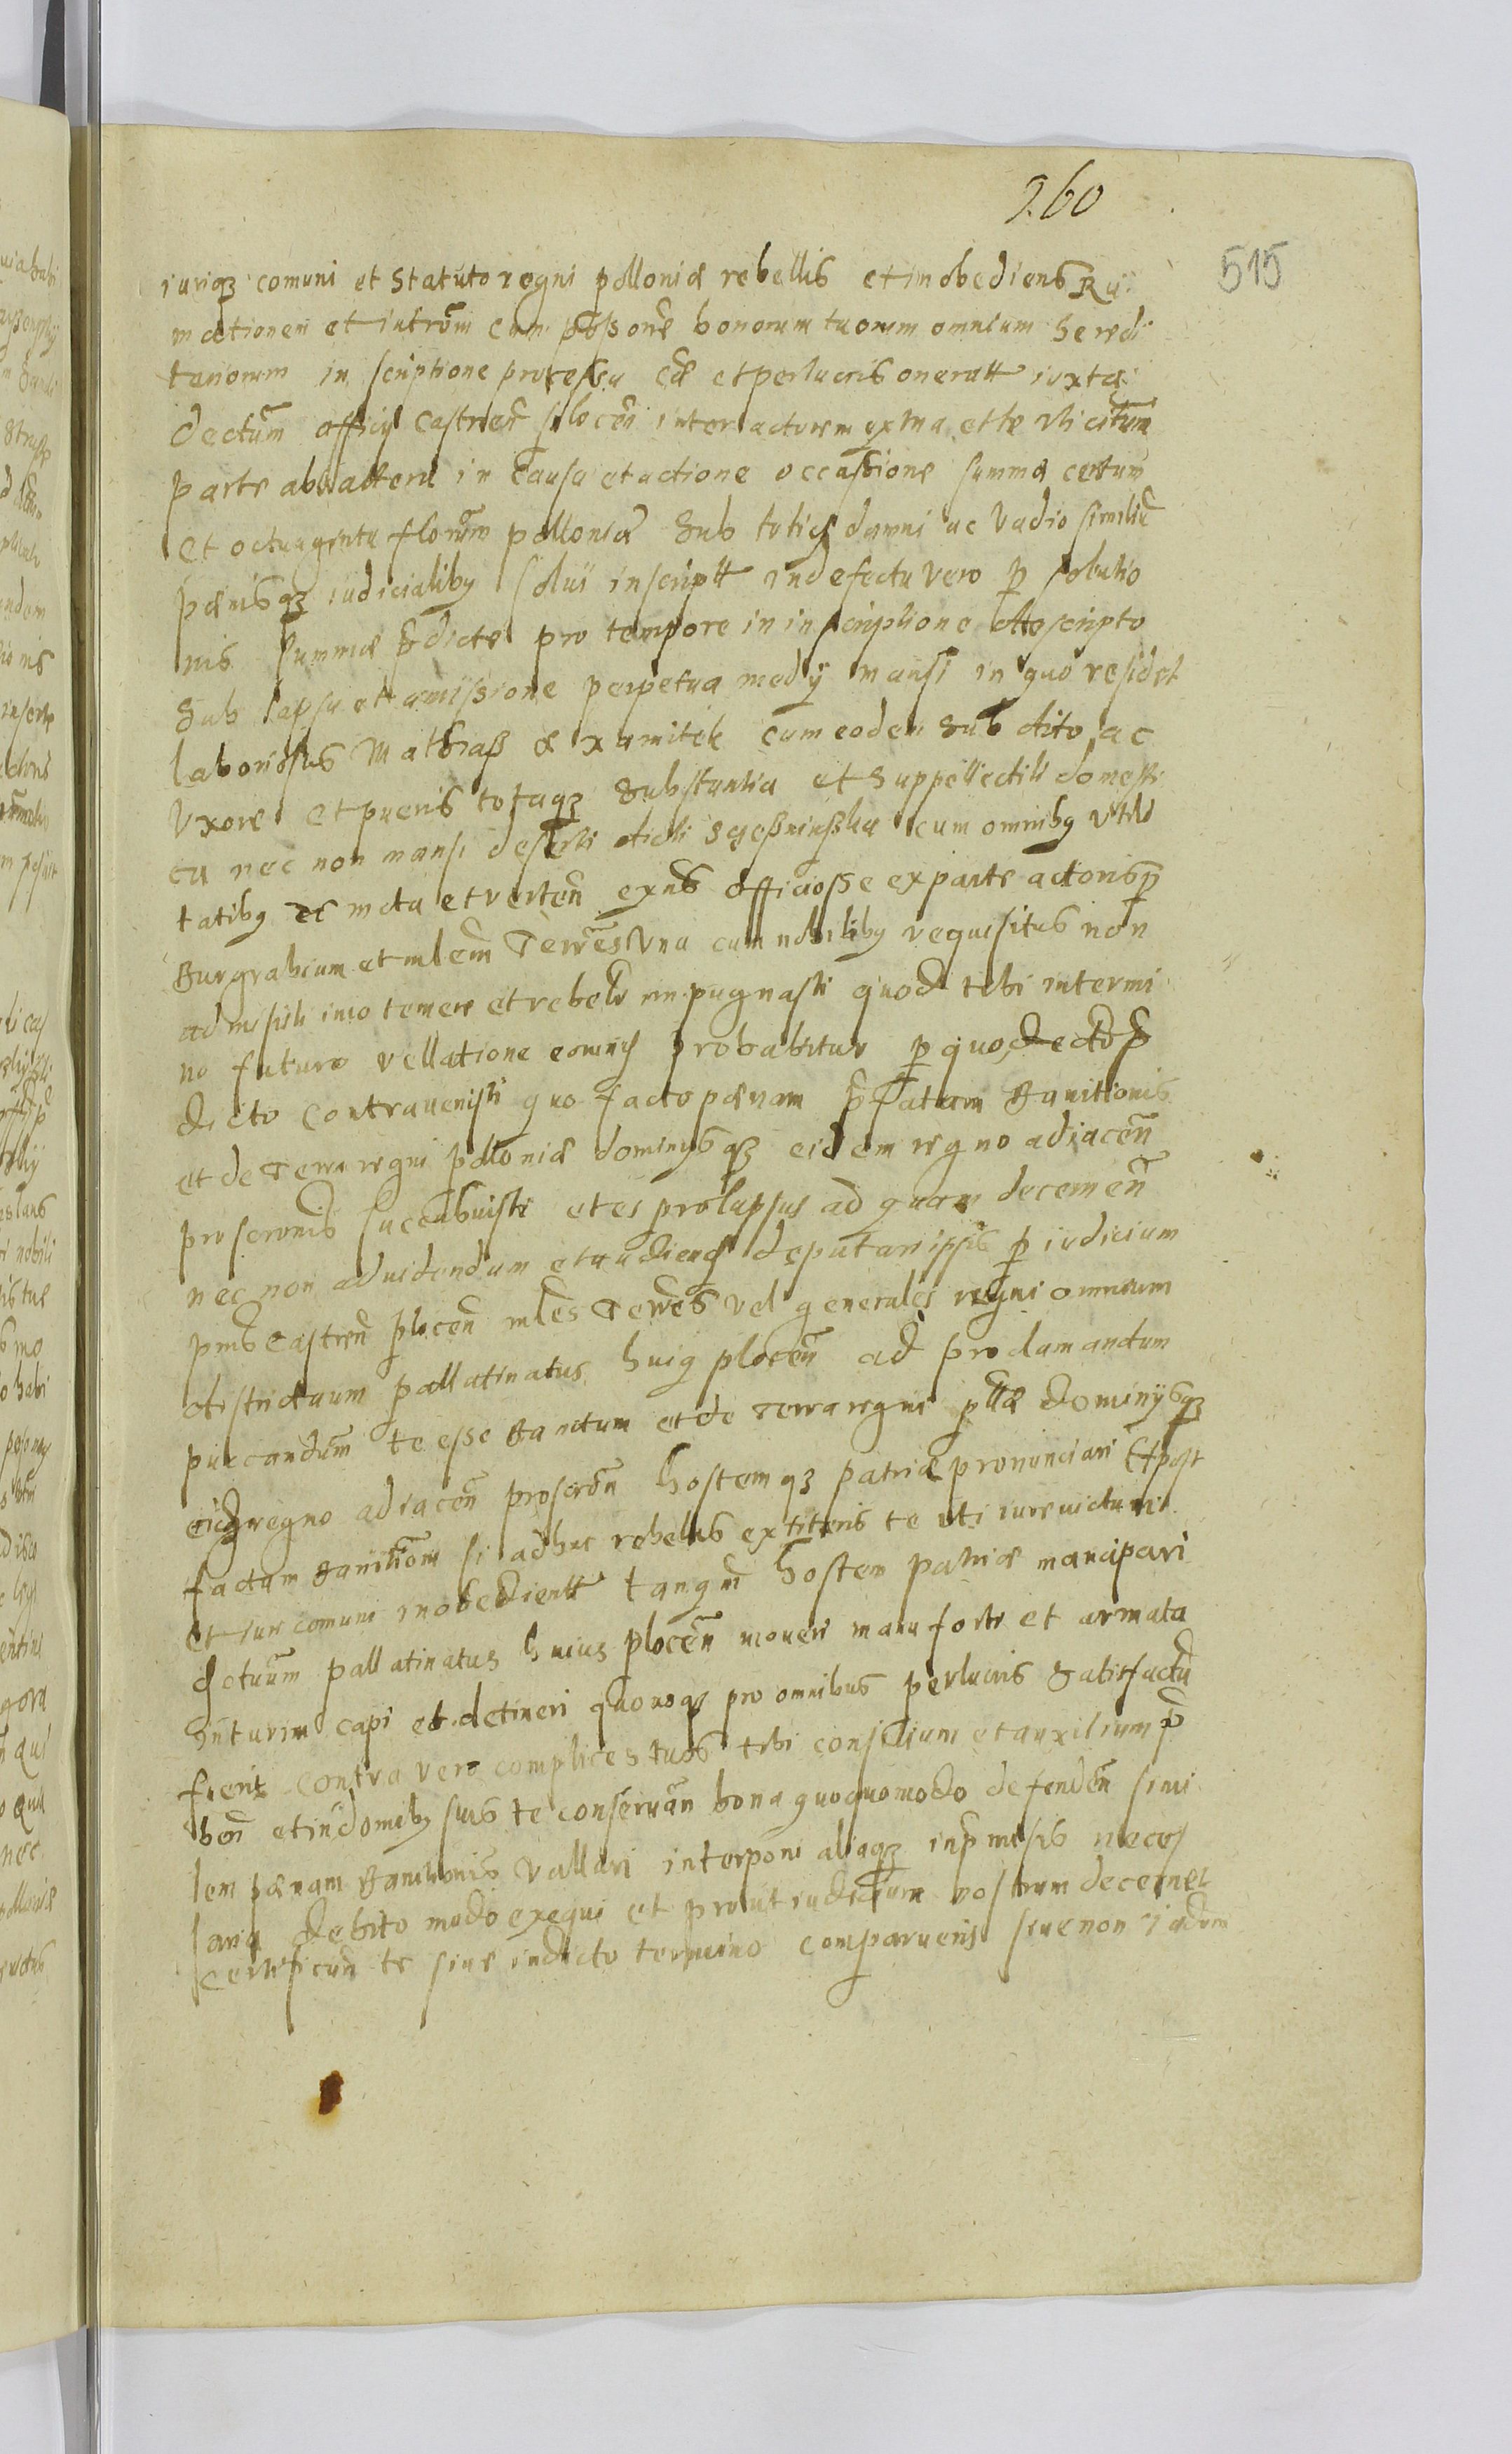 260
515
iuriqz comuni et Statuto regni polloniæ rebellis et inobediens Ru
mationem et intrõm cum possone bonorum tuorum omnium heredi
tariorum in scriptione processu et perlucris oneratt iuxta
dectum officij castren plocen inter actorem ex una et te citatum
parte ab altera in causa et actione occassione summæ centum
et octuaginta florum polloniæ sub totid damni ac vadio similiũ
pænisqz iudicialiby solui inscriptt in defectu vero p solutio
nis summæ pdictæ pro tempore in inscriptione descripto
sub lapsu et amissione perpetua medij mansi in quo residet
laboriosus Mathiaß cum eodem subdito ac
Uxore et pueris totaqz substantia et suppellectili domesti
ca nec non mansi deserti dicti cum omniby utili
tatiby ac meta et verten exns officiosse ex parte actoris p
Burgrabium et mlem Terres una cum nobiliby requisitus non
admisisti imo temere et rebelle impugnasti quod tibi in termi
no futuro rellatione probabitur p quo decto p
dicto contrauenisti quo facto pænam p latam Banitionis
et de Terra regni polloniæ dominijsqz eidem regno adiacen
proscronis succubuisti et es prolapsus ad quam decernen
nec non ad videndum et audiend deputari ipsis p iudicium
pns Castren plocen mles Terres vel generales regni omnium
districtuum pallatinatus huig plocen ad proclamandum
puccandum te esse Banitum et de terra regni pllæ dominijsqz
eidz regno adiacen proscron hostemqz patriæ pronunciari Et post
factam Banitionem si adhuc rebellis extiteris te uti iure victum
et iuri comuni inobedientt tanqm hostem patriæ mancipari
dctuum pallatinatus huius plocen mouere manu forti et armata
capi et detineri quousqz pro omnibus perlucris satisfactu
fierit contra vero complices tuos tibi consilium et auxilium p
ben et in domiby suis te conseruan bona quoquomodo defenden simi
lem pænam Banitionis vallari interponi aliaqz in pmissis neces
saria debito modo exequi et prout iudicium nostrum decernet
Certifican te siue in dicto termino comparueris siue non Iudm